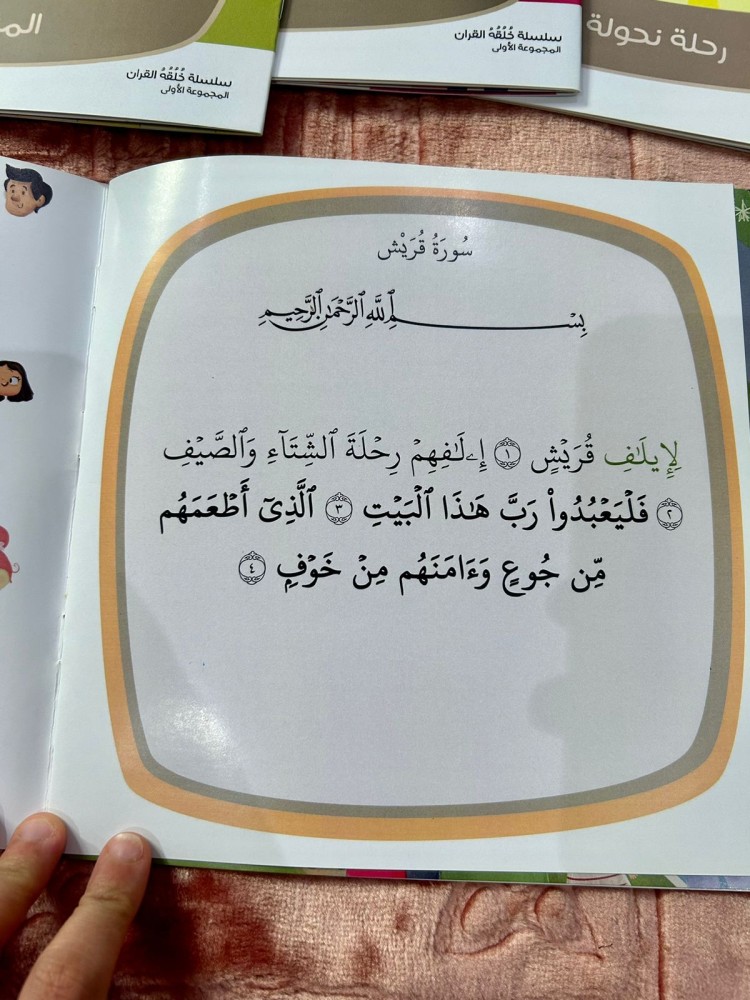 سلسلة خُلُقُهُ القرآن
المجموعة الأولى
سلسلة خُلُقُهُ القرآن
المجموعة الأولى
رحلة نحولة
سُورَةُ قُرَيْشٍ
بِسْمِ ٱللَّهِ ٱلرَّحْمَٰنِ ٱلرَّحِيمِ
لِإِيلَٰفِ قُرَيْشٍ ١ إِۦلَٰفِهِمْ رِحْلَةَ ٱلشِّتَآءِ وَٱلصَّيْفِ
٢ فَلْيَعْبُدُوا۟ رَبَّ هَٰذَا ٱلْبَيْتِ ٣ ٱلَّذِىٓ أَطْعَمَهُم
مِّن جُوعٍ وَءَامَنَهُم مِنْ خَوْفٍ ٤